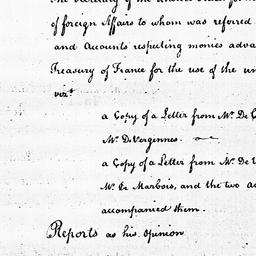 The Secretary of the United States for the
of foreign Affairs to whom was referred
and Accounts respecting monies adva
Treasury of France for the use of the un
vizt
a Copy of a Letter from Mr. De C
Mr. De Vergennes.
a Copy of a Letter from Mr. De V
Mr. De Marbois, and the two ac
accompanied them.
Reports as his opinion